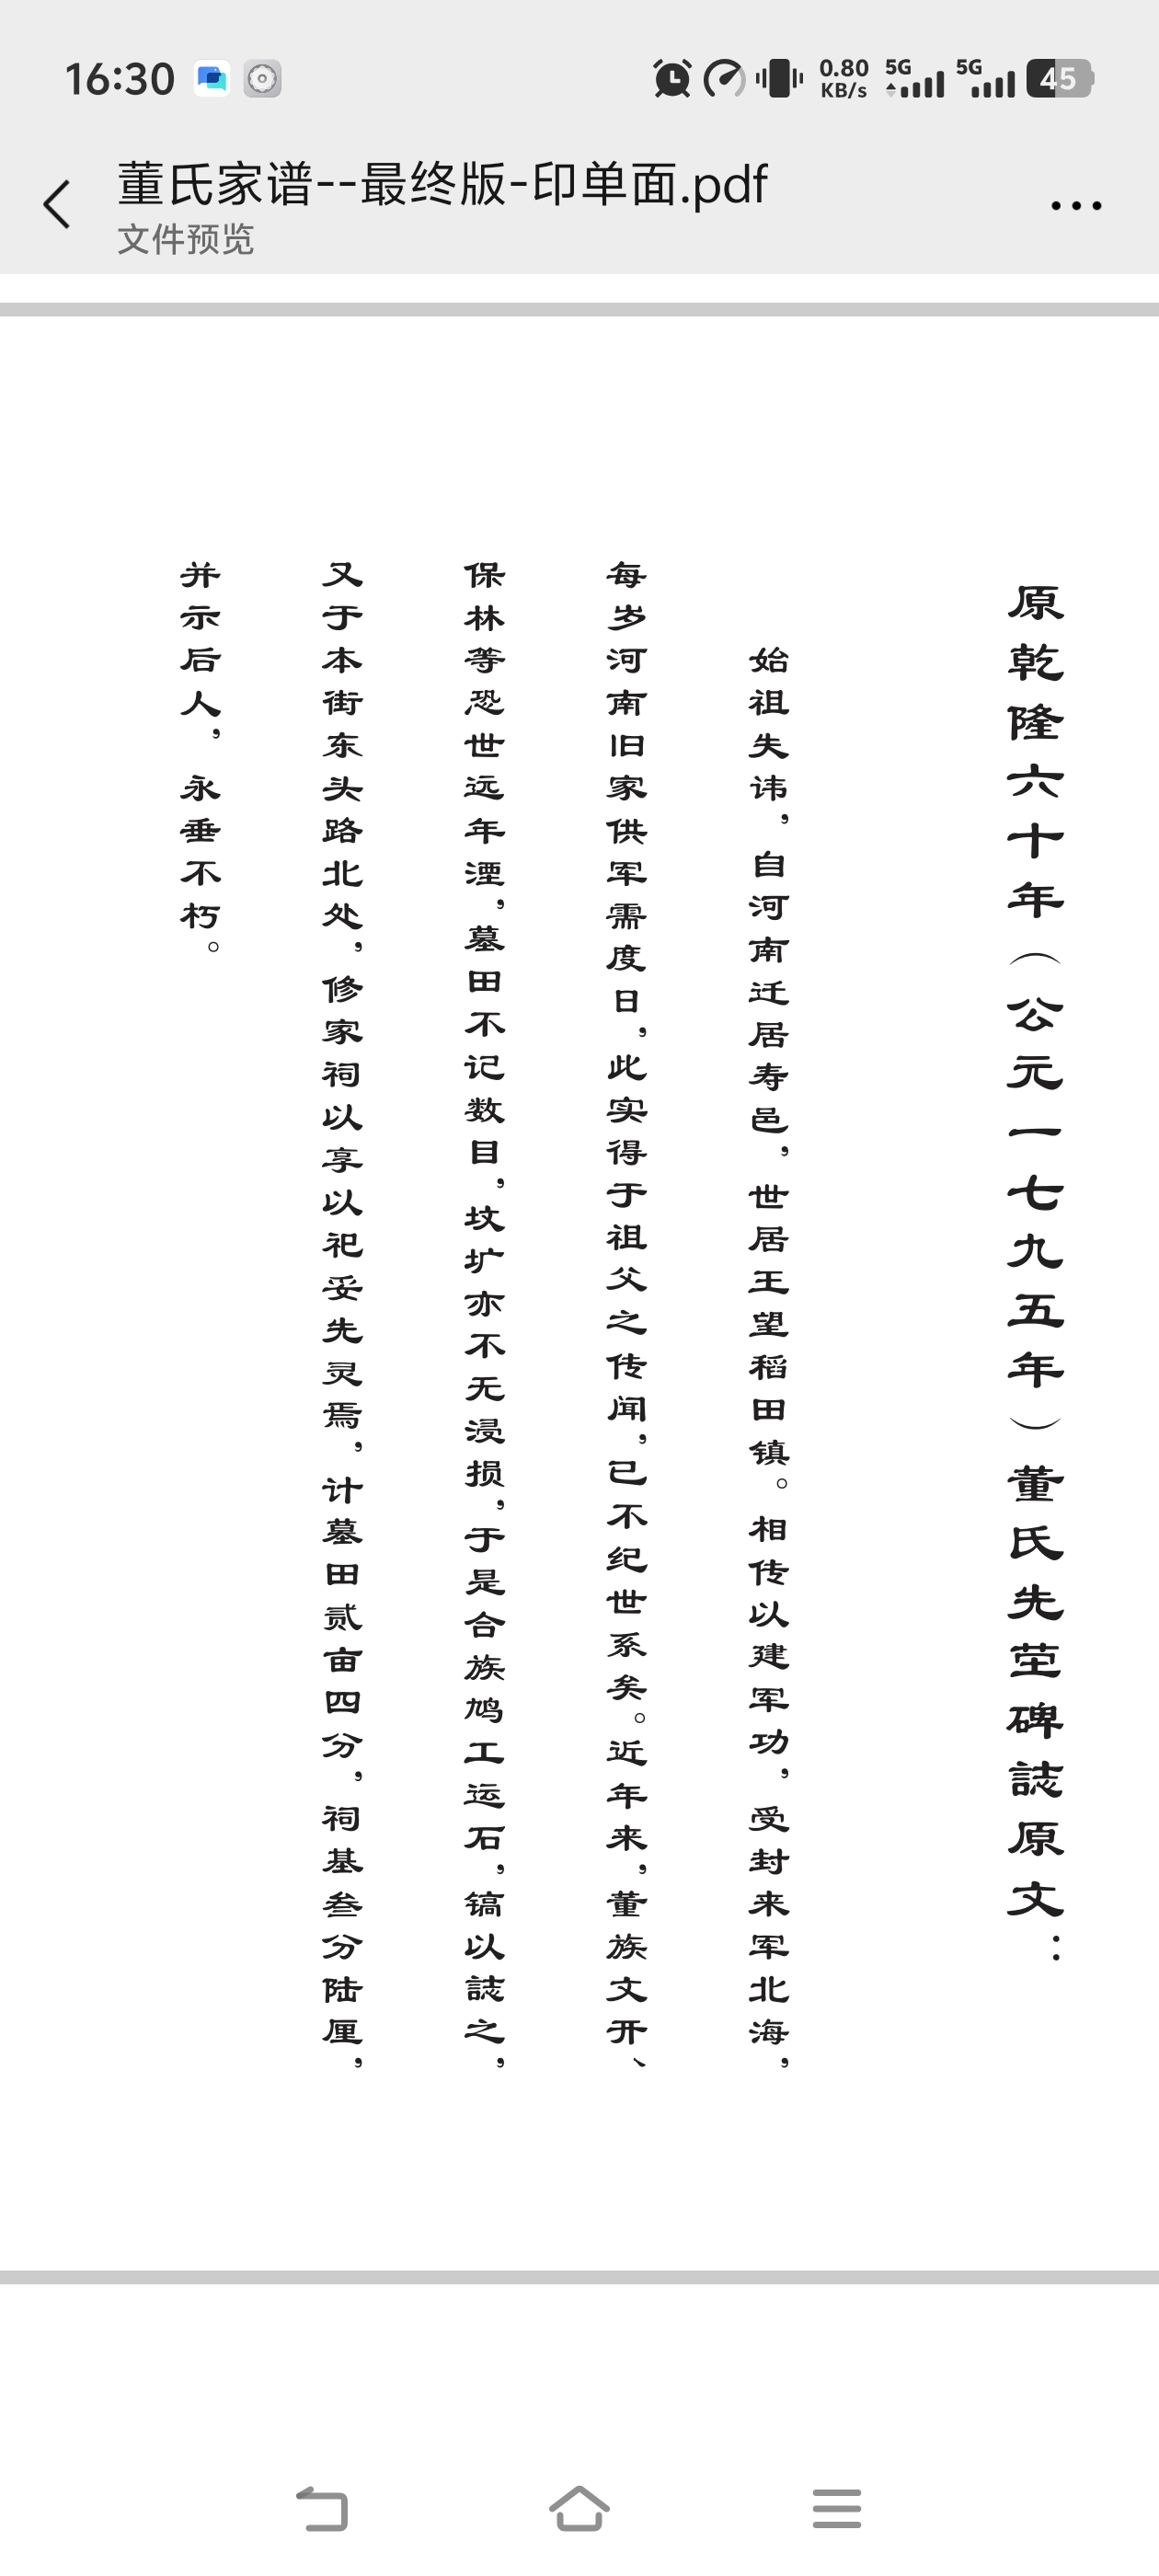 16:30
0.80 KB/s 5G 5G 45
董氏家谱--最终版-印单面.pdf
文件预览
原乾隆六十年（公元一七九五年）董氏先茔碑誌原文：
始祖失讳，自河南迁居寿邑，世居王望稻田镇。相传以建军功，受封来军北海，
每岁河南旧家供军需度日，此实得于祖父之传闻，已不纪世系矣。近年来，董族文开、
保林等恐世远年湮，墓田不记数目，坟圹亦不无浸损，于是合族鸠工运石，镐以誌之，
又于本街东头路北处，修家祠以享以祀妥先灵焉，计墓田贰亩四分，祠基叁分陆厘，
并示后人，永垂不朽。